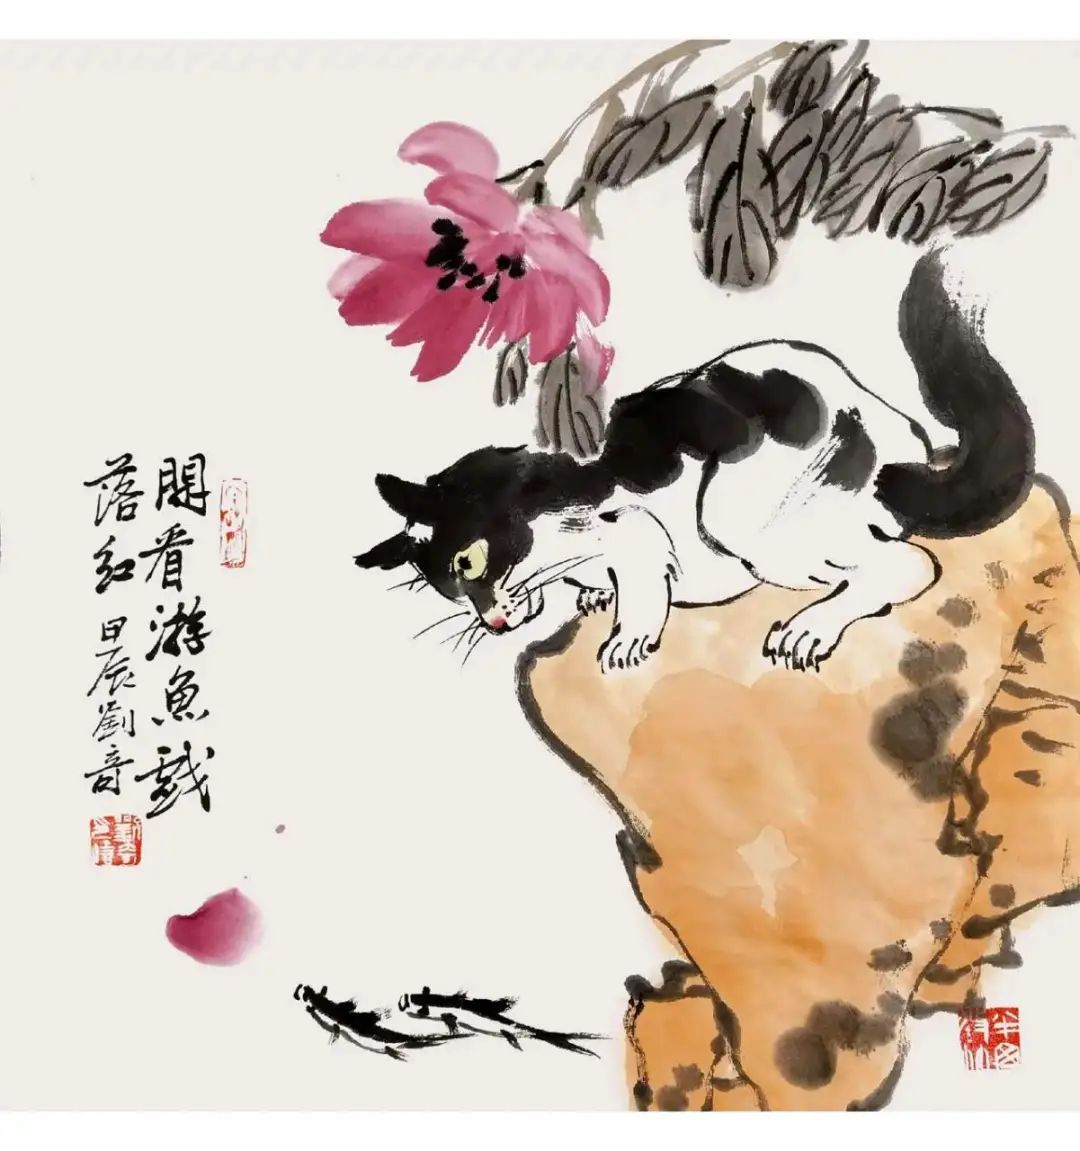 閒看游魚戲
落紅 甲辰劉音